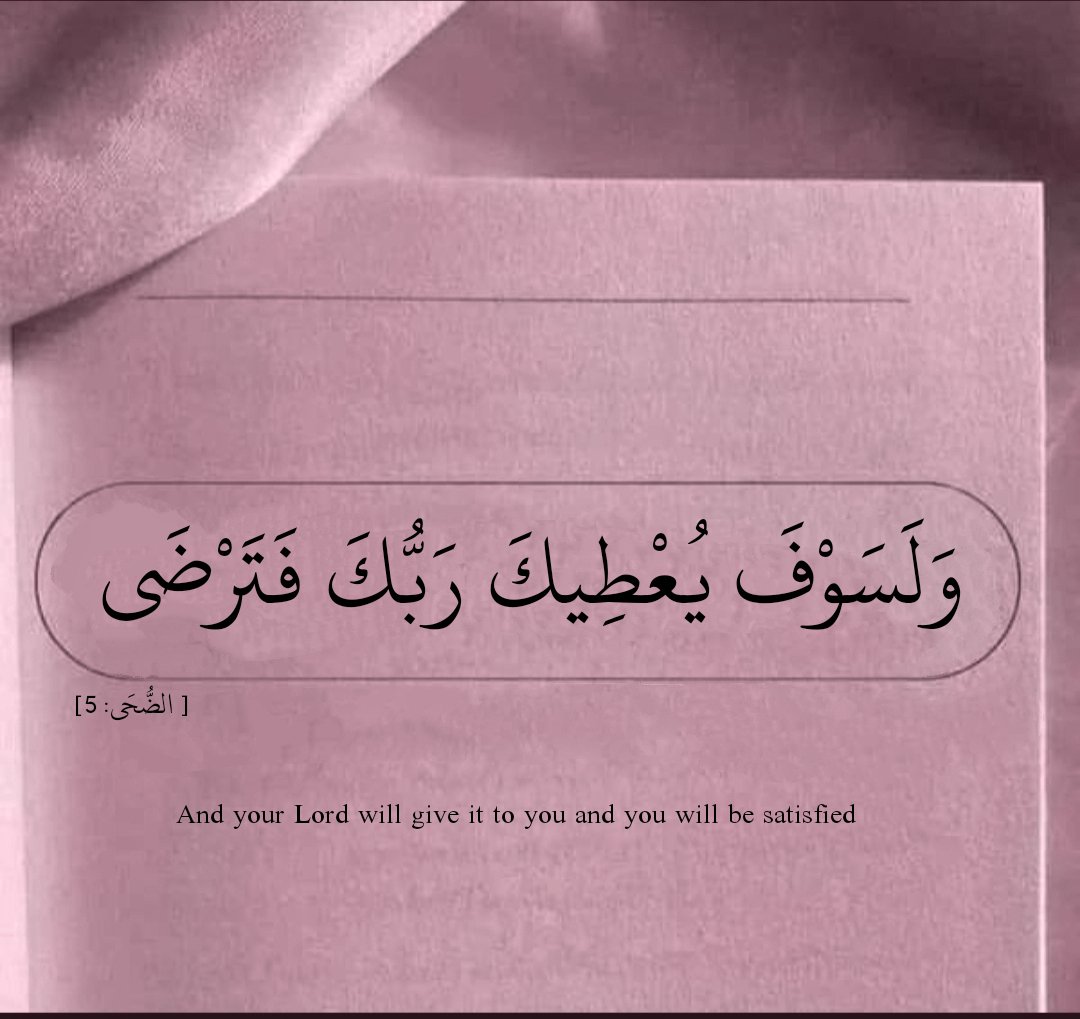 وَلَسَوْفَ يُعْطِيكَ رَبُّكَ فَتَرْضَى
[ الضُّحَى: 5]
And your Lord will give it to you and you will be satisfied